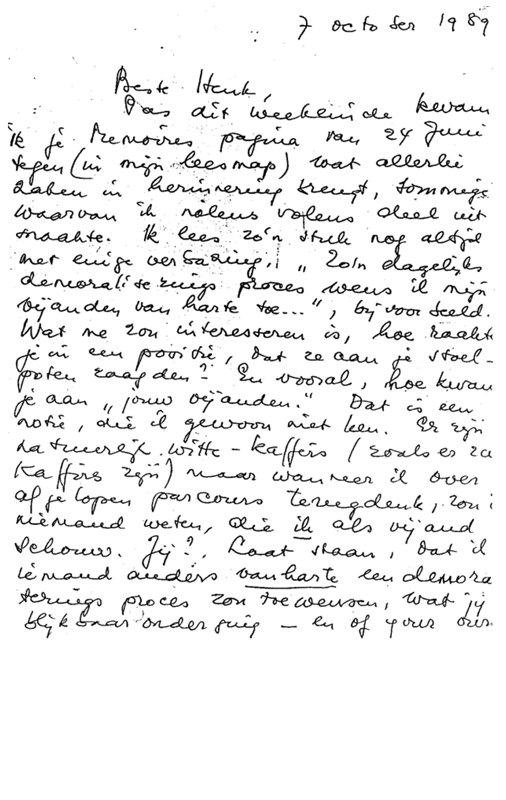 7 october 1989
Beste Henk,
Pas dit weekeinde kwam
ik je Memoires pagina van 24 Juni
tegen (in mijn leesmap) wat allerlei
zaken in herinnering brengt, sommige
waarvan ik nolens volens deel uit
maakte. Ik lees zo'n stuk nog altijd
met enige verbazing: „Zo'n dagelijks
demoraliserings proces wens ik mijn
vijanden van harte toe...", bijvoorbeeld.
Wat me zou interesseren is, hoe raakte
je in een positie, dat ze aan je stoel-
poten zaagden? En vooral, hoe kwam
je aan „jouw vijanden." Dat is een
notie, die ik gewoon niet ken. Er zijn
natuurlijk witte-kaffers (zoals er za
Kaffirs zijn) maar wanneer ik over
afgelopen parcours terugdenk, zou i
niemand weten, die ik als vijand
schouw. Jij? Laat staan, dat ik
iemand anders van harte een demora
liserings proces zou toewensen, wat jij
blijkbaar onderging – en of your own